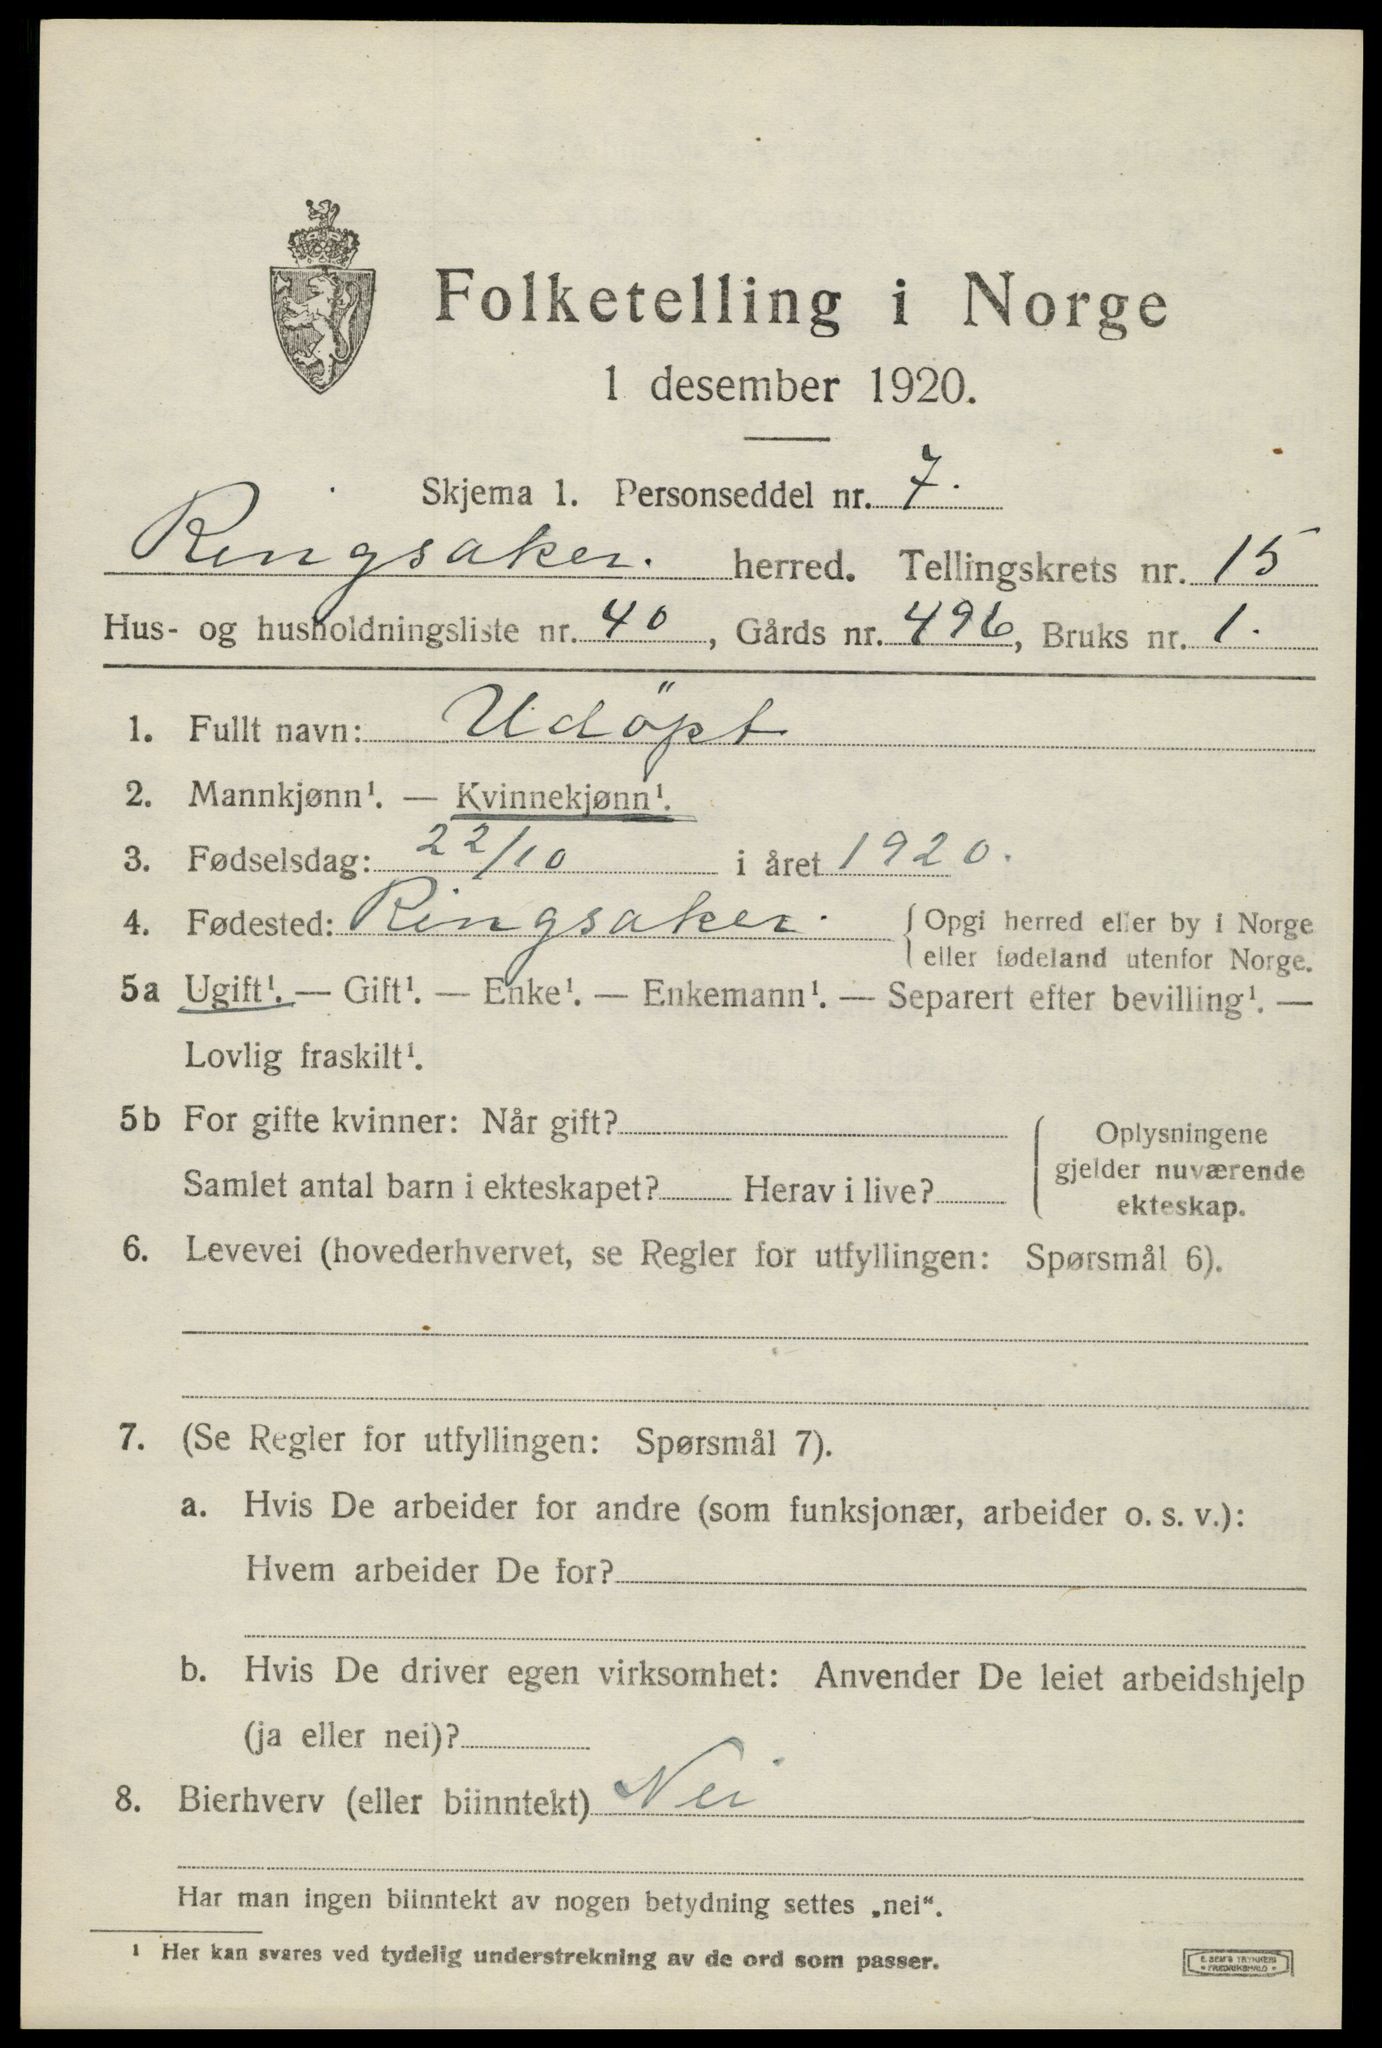 Folketelling i Norge
1 desember 1920.
Skjema 1. Personseddel nr. 7.
Ringsaker. herred. Tellingskrets nr. 15
Hus- og husholdningsliste nr. 40, Gårds nr. 496, Bruks nr. 1.
1. Fullt navn: Udöpt
2. Mannkjønn¹. — Kvinnekjønn¹.
3. Fødselsdag: 22/10 i året 1920.
4. Fødested: Ringsaker. { Opgi herred eller by i Norge
eller fødeland utenfor Norge.
5a Ugift¹. — Gift¹. — Enke¹. — Enkemann¹. — Separert efter bevilling¹. —
Lovlig fraskilt¹.
5b For gifte kvinner: Når gift?
Samlet antal barn i ekteskapet? Herav i live?
Oplysningene
gjelder nuværende
ekteskap.
6. Levevei (hovederhvervet, se Regler for utfyllingen: Spørsmål 6).
7. (Se Regler for utfyllingen: Spørsmål 7).
a. Hvis De arbeider for andre (som funksjonær, arbeider o. s. v.):
Hvem arbeider De for?
b. Hvis De driver egen virksomhet: Anvender De leiet arbeidshjelp
(ja eller nei)?
8. Bierhverv (eller biinntekt) Nei
Har man ingen biinntekt av nogen betydning settes „nei“.
¹ Her kan svares ved tydelig understrekning av de ord som passer.
E. SEM'S TRYKKERI
• FREDRIKSHALD •